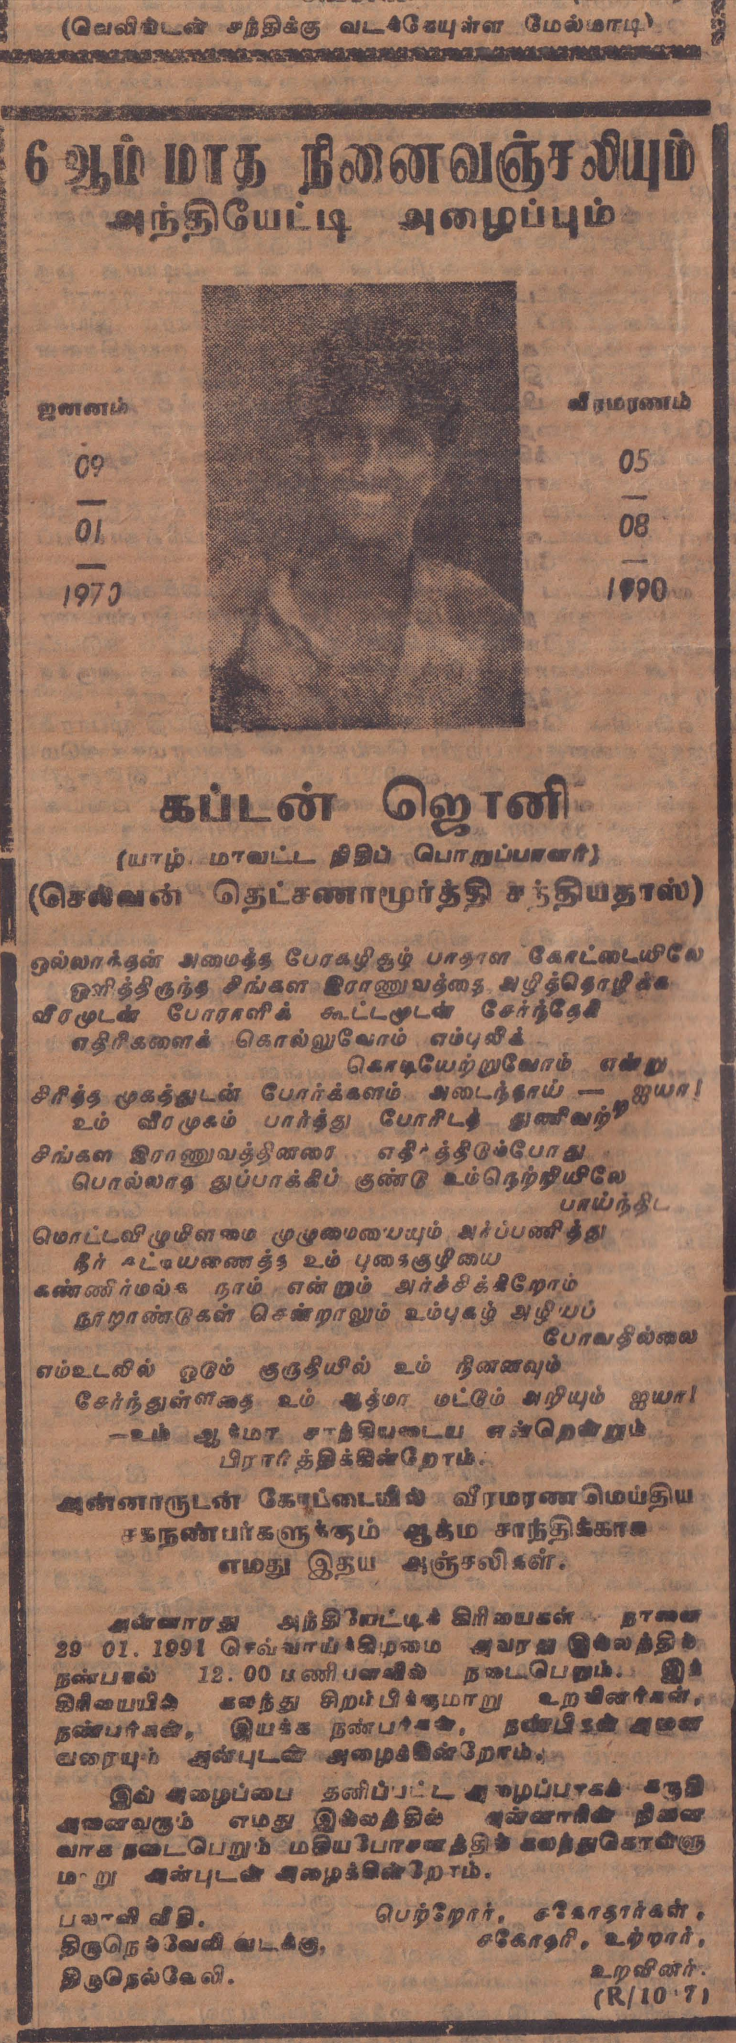 (வெலிங்டன் சந்திக்கு வடக்கேயுள்ள மேல்மாடி)
6 ஆம் மாத நினைவஞ்சலியும்
அந்தியேட்டி அழைப்பும்
ஜனனம்
09
01
1970
வீரமரணம்
05
08
1990
கப்டன் ஜொனி
(யாழ் மாவட்ட நிதிப் பொறுப்பாளர்)
(செல்வன் தெட்சணாமூர்த்தி சந்தியதாஸ்)
ஒல்லாந்தன் அமைத்த பேரகழிசூழ் பாதாள கோட்டையிலே
ஒளித்திருந்த சிங்கள இராணுவத்தை அழித்தொழிக்க
வீரமுடன் போராளிக் கூட்டமுடன் சேர்ந்தேகி
எதிரிகளைக் கொல்லுவோம் எம்புலிக்
கொடியேற்றுவோம் என்று
சிரித்த முகத்துடன் போர்க்களம் அடைந்தாய் — ஐயா!
உம் வீரமுகம் பார்த்து போரிடத் துணிவற்ற
சிங்கள இராணுவத்தினரை எதிர்த்திடும்போது
பொல்லாத துப்பாக்கிப் குண்டு உம்நெற்றியிலே
பாய்ந்திட
மொட்டவிழுமிளமை முழுமையையும் அர்ப்பணித்து
நீர் கட்டியணைத்த உம் புதைகுழியை
கண்ணிர்மல்க நாம் என்றும் அர்ச்சிக்கிறோம்
நூறாண்டுகள் சென்றாலும் உம்புகழ் அழியப்
போவதில்லை
எம்உடலில் ஓடும் குருதியில் உம் நினைவும்
சேர்ந்துள்ளதை உம் ஆத்மா மட்டும் அறியும் ஐயா!
—உம் ஆத்மா சாந்தியடைய என்றென்றும்
பிரார்த்திக்கின்றோம்.
அன்னாருடன் கோட்டையில் வீரமரணமெய்திய
சகநண்பர்களுக்கும் ஆத்ம சாந்திக்காக
எமது இதய அஞ்சலிகள்.
அன்னாரது அந்தியேட்டிக் கிரியைகள் நாளை
29 01. 1991 செவ்வாய்க்கிழமை அவரது இல்லத்தில்
நண்பகல் 12.00 மணியளவில் நடைபெறும். இக்
கிரியையில் கலந்து சிறப்பிக்குமாறு உறவினர்கள்,
நண்பர்கள், இயக்க நண்பர்கள், நண்பிகள் அனை
வரையும் அன்புடன் அழைக்கின்றோம்.
இவ் அழைப்பை தனிப்பட்ட அழைப்பாகக் கருதி
அனைவரும் எமது இல்லத்தில் அன்னாரின் நினை
வாக நடைபெறும் மதியபோசனத்தில் கலந்துகொள்ளு
மாறு அன்புடன் அழைக்கின்றோம்.
பலாலி வீதி,
திருநெல்வேலி வடக்கு,
திருநெல்வேலி.
பெற்றோர், சகோதரர்கள்,
சகோதரி, உற்றார்,
உறவினர்.
(R/10 7)